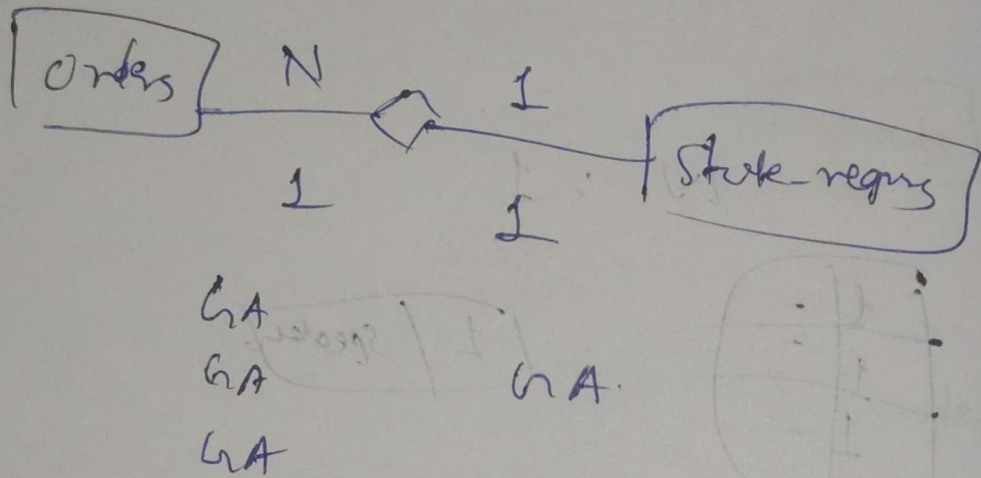 Orders N 1 State-reqrs
1 1
GA
GA GA.
GA